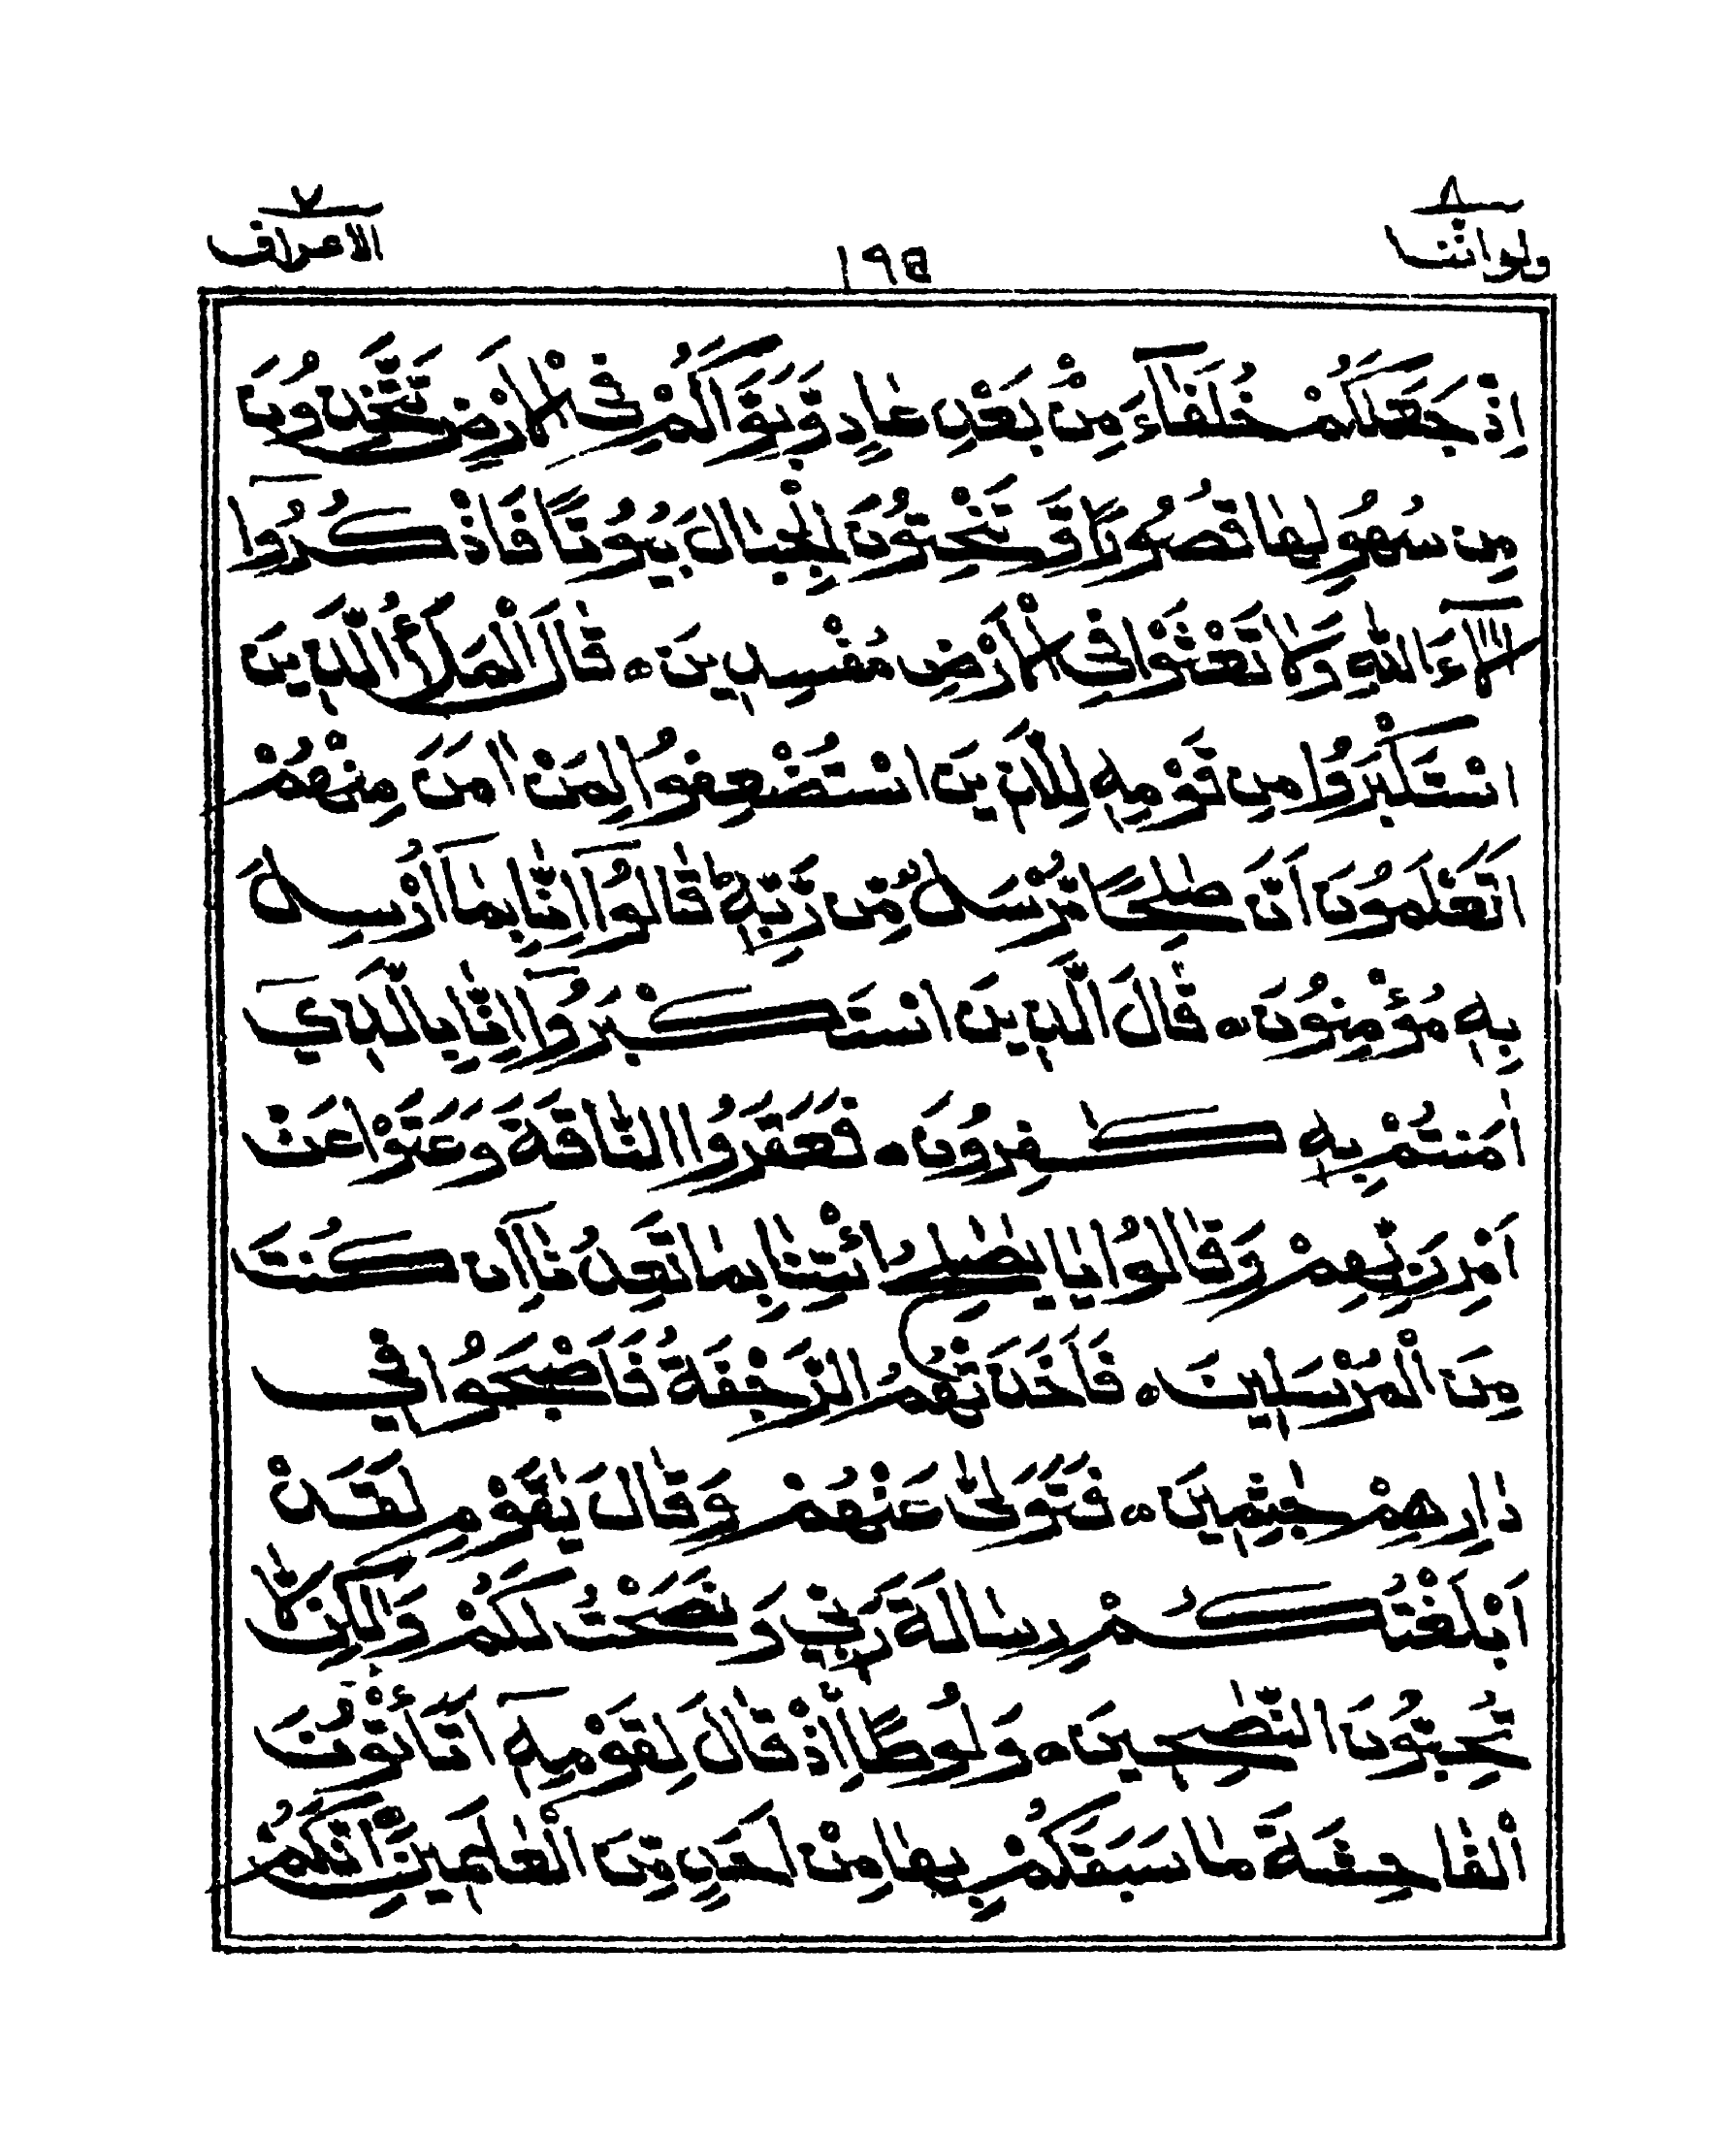 ٨ ولواننا
١٩٥
٧ الاعراف
اِذْ جَعَلَكُمْ خُلَفَآءَ مِنْۢ بَعْدِ عَادٍ وَّبَوَّاَكُمْ فِى الْاَرْضِ تَتَّخِذُوْنَ
مِنْ سُهُوْلِهَا قُصُوْرًا وَّتَنْحِتُوْنَ الْجِبَالَ بُيُوْتًا فَاذْكُرُوْٓا
اٰلَآءَ اللّٰهِ وَلَا تَعْثَوْا فِى الْاَرْضِ مُفْسِدِيْنَ ۝ قَالَ الْمَلَاُ الَّذِيْنَ
اسْتَكْبَرُوْا مِنْ قَوْمِهٖ لِلَّذِيْنَ اسْتُضْعِفُوْا لِمَنْ اٰمَنَ مِنْهُمْ
اَتَعْلَمُوْنَ اَنَّ صٰلِحًا مُّرْسَلٌ مِّنْ رَّبِّهٖ ؕ قَالُوْٓا اِنَّا بِمَآ اُرْسِلَ
بِهٖ مُؤْمِنُوْنَ ۝ قَالَ الَّذِيْنَ اسْتَكْبَرُوْٓا اِنَّا بِالَّذِيْٓ
اٰمَنْتُمْ بِهٖ كٰفِرُوْنَ ۝ فَعَقَرُوا النَّاقَةَ وَعَتَوْا عَنْ
اَمْرِ رَبِّهِمْ وَقَالُوْا يَا يٰصٰلِحُ ائْتِنَا بِمَا تَعِدُنَآ اِنْ كُنْتَ
مِنَ الْمُرْسَلِيْنَ ۝ فَاَخَذَتْهُمُ الرَّجْفَةُ فَاَصْبَحُوْا فِيْ
دَارِهِمْ جٰثِمِيْنَ ۝ فَتَوَلّٰى عَنْهُمْ وَقَالَ يٰقَوْمِ لَقَدْ
اَبْلَغْتُكُمْ رِسَالَةَ رَبِّيْ وَنَصَحْتُ لَكُمْ وَلٰكِنْ لَّا
تُحِبُّوْنَ النّٰصِحِيْنَ ۝ وَلُوْطًا اِذْ قَالَ لِقَوْمِهٖٓ اَتَأْتُوْنَ
الْفَاحِشَةَ مَا سَبَقَكُمْ بِهَا مِنْ اَحَدٍ مِّنَ الْعٰلَمِيْنَ ۝ اِنَّكُمْ